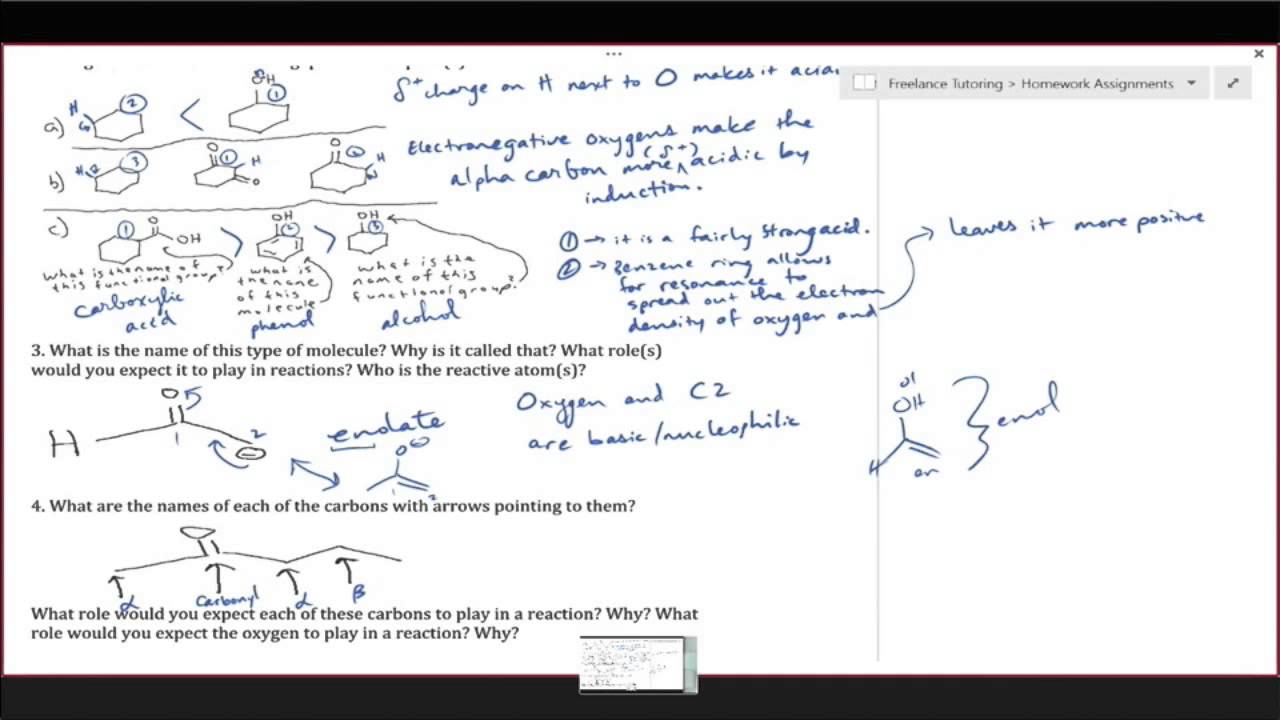 δ+ charge on H next to O makes it
Freelance Tutoring > Homework Assignments
a) H 2 < OH 1
Electronegative oxygens make the
(δ+)
alpha carbon more ^ acidic by
induction.
b) H 3 O 1 H O O 2 H
c) 1 O OH > OH 2 > OH 3
① → it is a fairly strong acid.
② → Benzene ring allows
for resonance to
spread out the electron
density of oxygen and
→ leaves it more positive
what is the name of
this functional group?
carboxylic
acid
what is
the name
of this
molecule
phenol
what is the
name of this
functional group?
alcohol
3. What is the name of this type of molecule? Why is it called that? What role(s)
would you expect it to play in reactions? Who is the reactive atom(s)?
O
H 1 2 ⊖
enolate
O ⊖
1 2
Oxygen and C2
are basic/nucleophilic
ol
OH
H
en
enol
4. What are the names of each of the carbons with arrows pointing to them?
O
α Carbonyl α β
What role would you expect each of these carbons to play in a reaction? Why? What
role would you expect the oxygen to play in a reaction? Why?